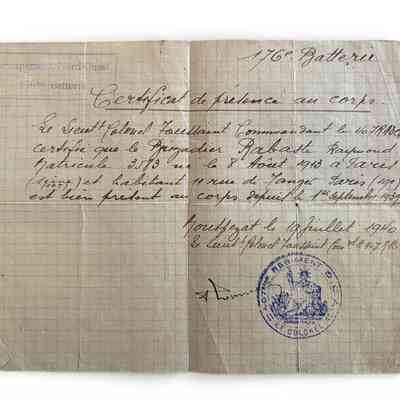 176e Batterie
Certificat de présence au corps.
Le Lieut Colonel Toussaint Commandant le 407 R
certifie que le Brigadier Rabaste Raymond
Matricule 3583 né le 8 Août 1913 à Paris
et habitant 11 rue de Tanger Paris (19e)
est bien présent au corps depuis le 1er septembre 1939
le 19 Juillet 1940
le Lieut Colonel Toussaint 407 R
REGIMENT
LE COLONEL